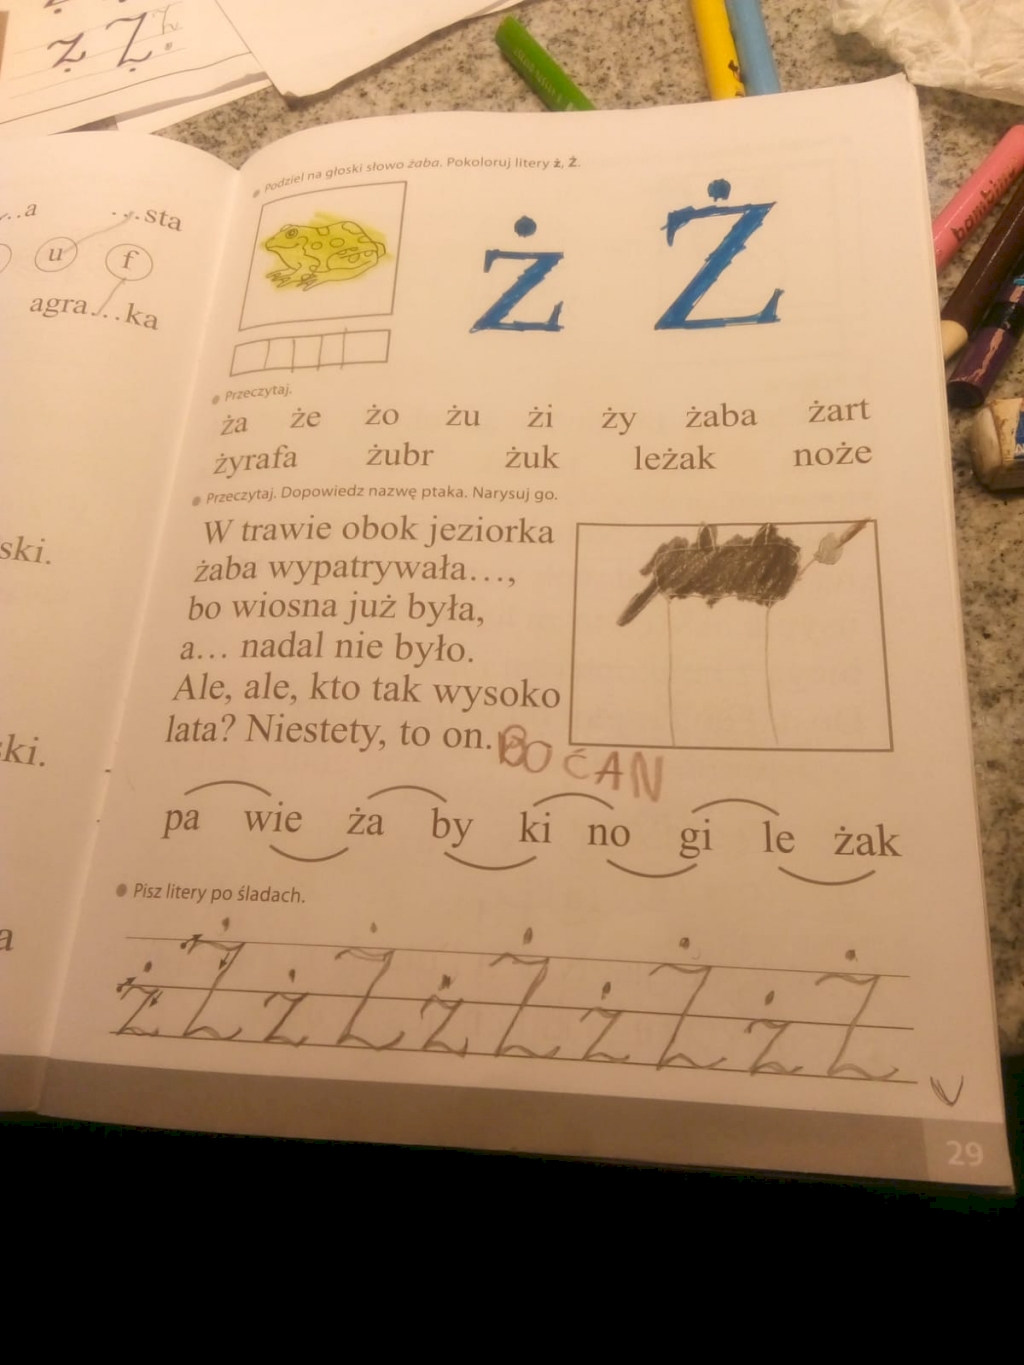 ż Ż
...a
...sta
u
f
agra...ka
ski.
ski.
a
Podziel na głoski słowo żaba. Pokoloruj litery ż, Ż.
ż Ż
Przeczytaj.
ża że żo żu żi ży żaba żart
żyrafa żubr żuk leżak noże
Przeczytaj. Dopowiedz nazwę ptaka. Narysuj go.
W trawie obok jeziorka
żaba wypatrywała...,
bo wiosna już była,
a... nadal nie było.
Ale, ale, kto tak wysoko
lata? Niestety, to on.
BOĆAN
pa wie ża by ki no gi le żak
Pisz litery po śladach.
ż Ż ż Ż ż Ż ż Ż ż Ż
29
bambino